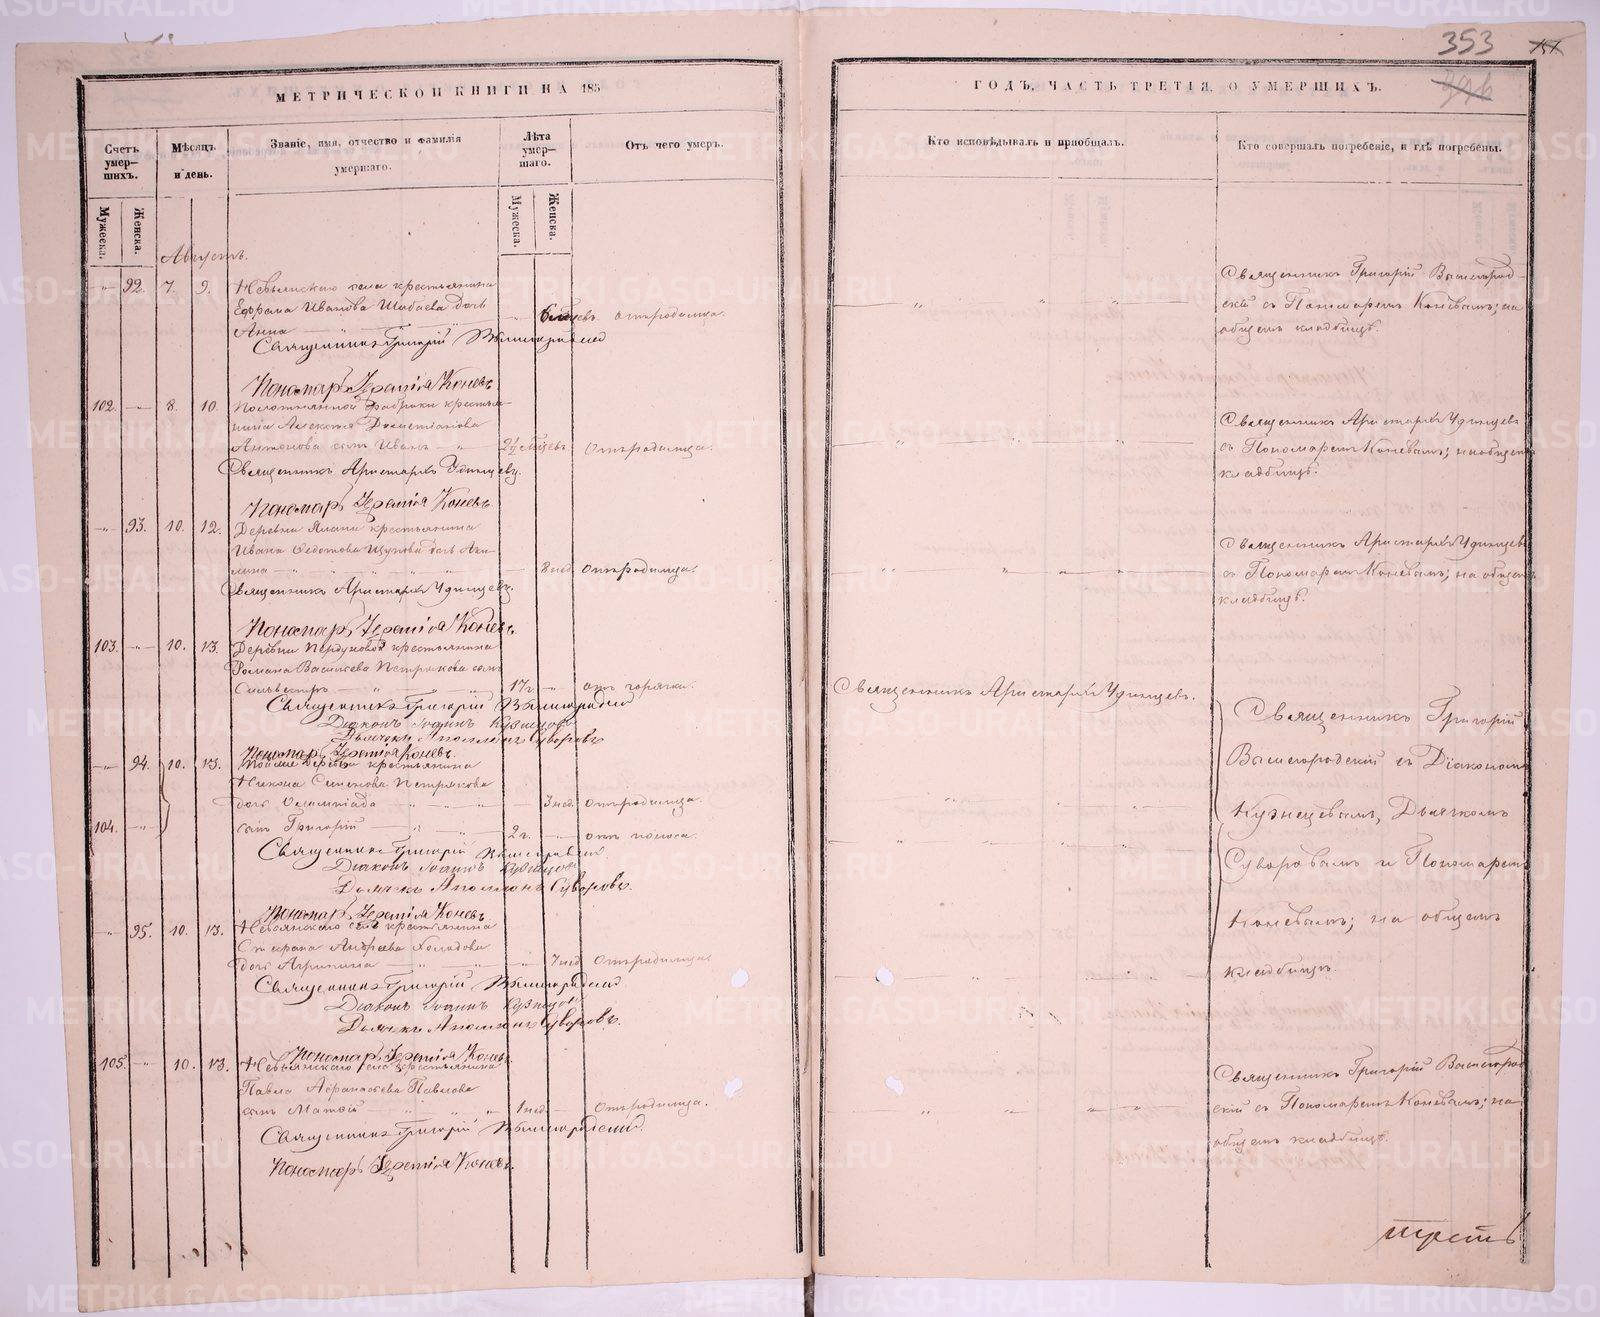 353
МЕТРИЧЕСКОЙ КНИГИ НА 185
Счетъ умер-шихъ.
Мѣсяцъ и день.
Званіе, имя, отчество и фамилія умершаго.
Лѣта умер-шаго.
Отъ чего умеръ.
Мужеска.
Женска.
Мужеска.
Женска.
Августъ.
92. 7. 9. Невьянскаго села крестьянина
Ефрема Иванова Шабаева дочь
Анна 6 мѣсцевъ. Отъ родимца.
Священникъ Григорій Вышегородскій
Пономарь Іеремія Коневъ
102. 8. 10. Полотняной фабрики крестья-
нина Алексѣя
Антонова сынъ Иванъ 2½ мѣсцевъ Отъ родимца.
Священникъ Аристархъ Удинцевъ.
Пономарь Іеремія Коневъ
93. 10. 12. Деревни Ялани крестьянина
Ивана Ѳедотова Щупова дочь Аки-
лина 8 нед. Отъ родимца.
Священникъ Аристархъ Удинцевъ.
Пономарь Іеремія Коневъ.
103. 10. 13. Деревни крестьянина
Романа Васильева Петрякова сынъ
Сильвестръ 17 г. отъ горячки.
Священникъ Григорій Вышегородскій
Діаконъ Іоаннъ Кузнецовъ
Дьячекъ Аполлонъ Суворовъ
Пономарь Іеремія Коневъ.
94. 10. 13. Тойже деревни крестьянина
Никона Семенова Петрякова
дочь Олимпіада 3 нед. Отъ родимца.
104. сынъ Григорій 2 г. отъ поноса.
Священникъ Григорій Вышегородскій
Діаконъ Іоаннъ Кузнецовъ
Дьячекъ Аполлонъ Суворовъ.
Пономарь Іеремія Коневъ.
95. 10. 13. Невьянскаго села крестьянина
Андреева Холодова
дочь Агрипина 7 нед. Отъ родимца.
Священникъ Григорій Вышегородскій
Діаконъ Іоаннъ Кузнецовъ
Дьячекъ Аполлонъ Суворовъ.
Пономарь Іеремія Коневъ
105. 10. 13. Невьянскаго села крестьянина
Павла Афанасьева Павлова
сынъ Матѳій 1 нед. Отъ родимца.
Священникъ Григорій Вышегородскій.
Пономарь Іеремія Коневъ.
ГОДЪ, ЧАСТЬ ТРЕТІЯ, О УМЕРШИХЪ.
Кто исповѣдывалъ и пріобщалъ.
Кто совершалъ погребеніе, и гдѣ погребены.
Священникъ Григорій Вышегород-
скій съ Пономаремъ Коневымъ; на
общемъ кладбищѣ.
Священникъ Аристархъ Удинцевъ
съ Пономаремъ Коневымъ; на общемъ
кладбищѣ.
Священникъ Аристархъ Удинцевъ
съ Пономаремъ Коневымъ; на общемъ
кладбищѣ.
Священникъ Аристархъ Удинцевъ.
Священникъ Григорій
Вышегородскій съ Діакономъ
Кузнецовымъ, Дьячкомъ
Суворовымъ и Пономаремъ
Коневымъ; на общемъ
кладбищѣ.
Священникъ Григорій Вышегород
скій съ Пономаремъ Коневымъ; на
общемъ кладбищѣ.
METRIKI.GASO-URAL.RU